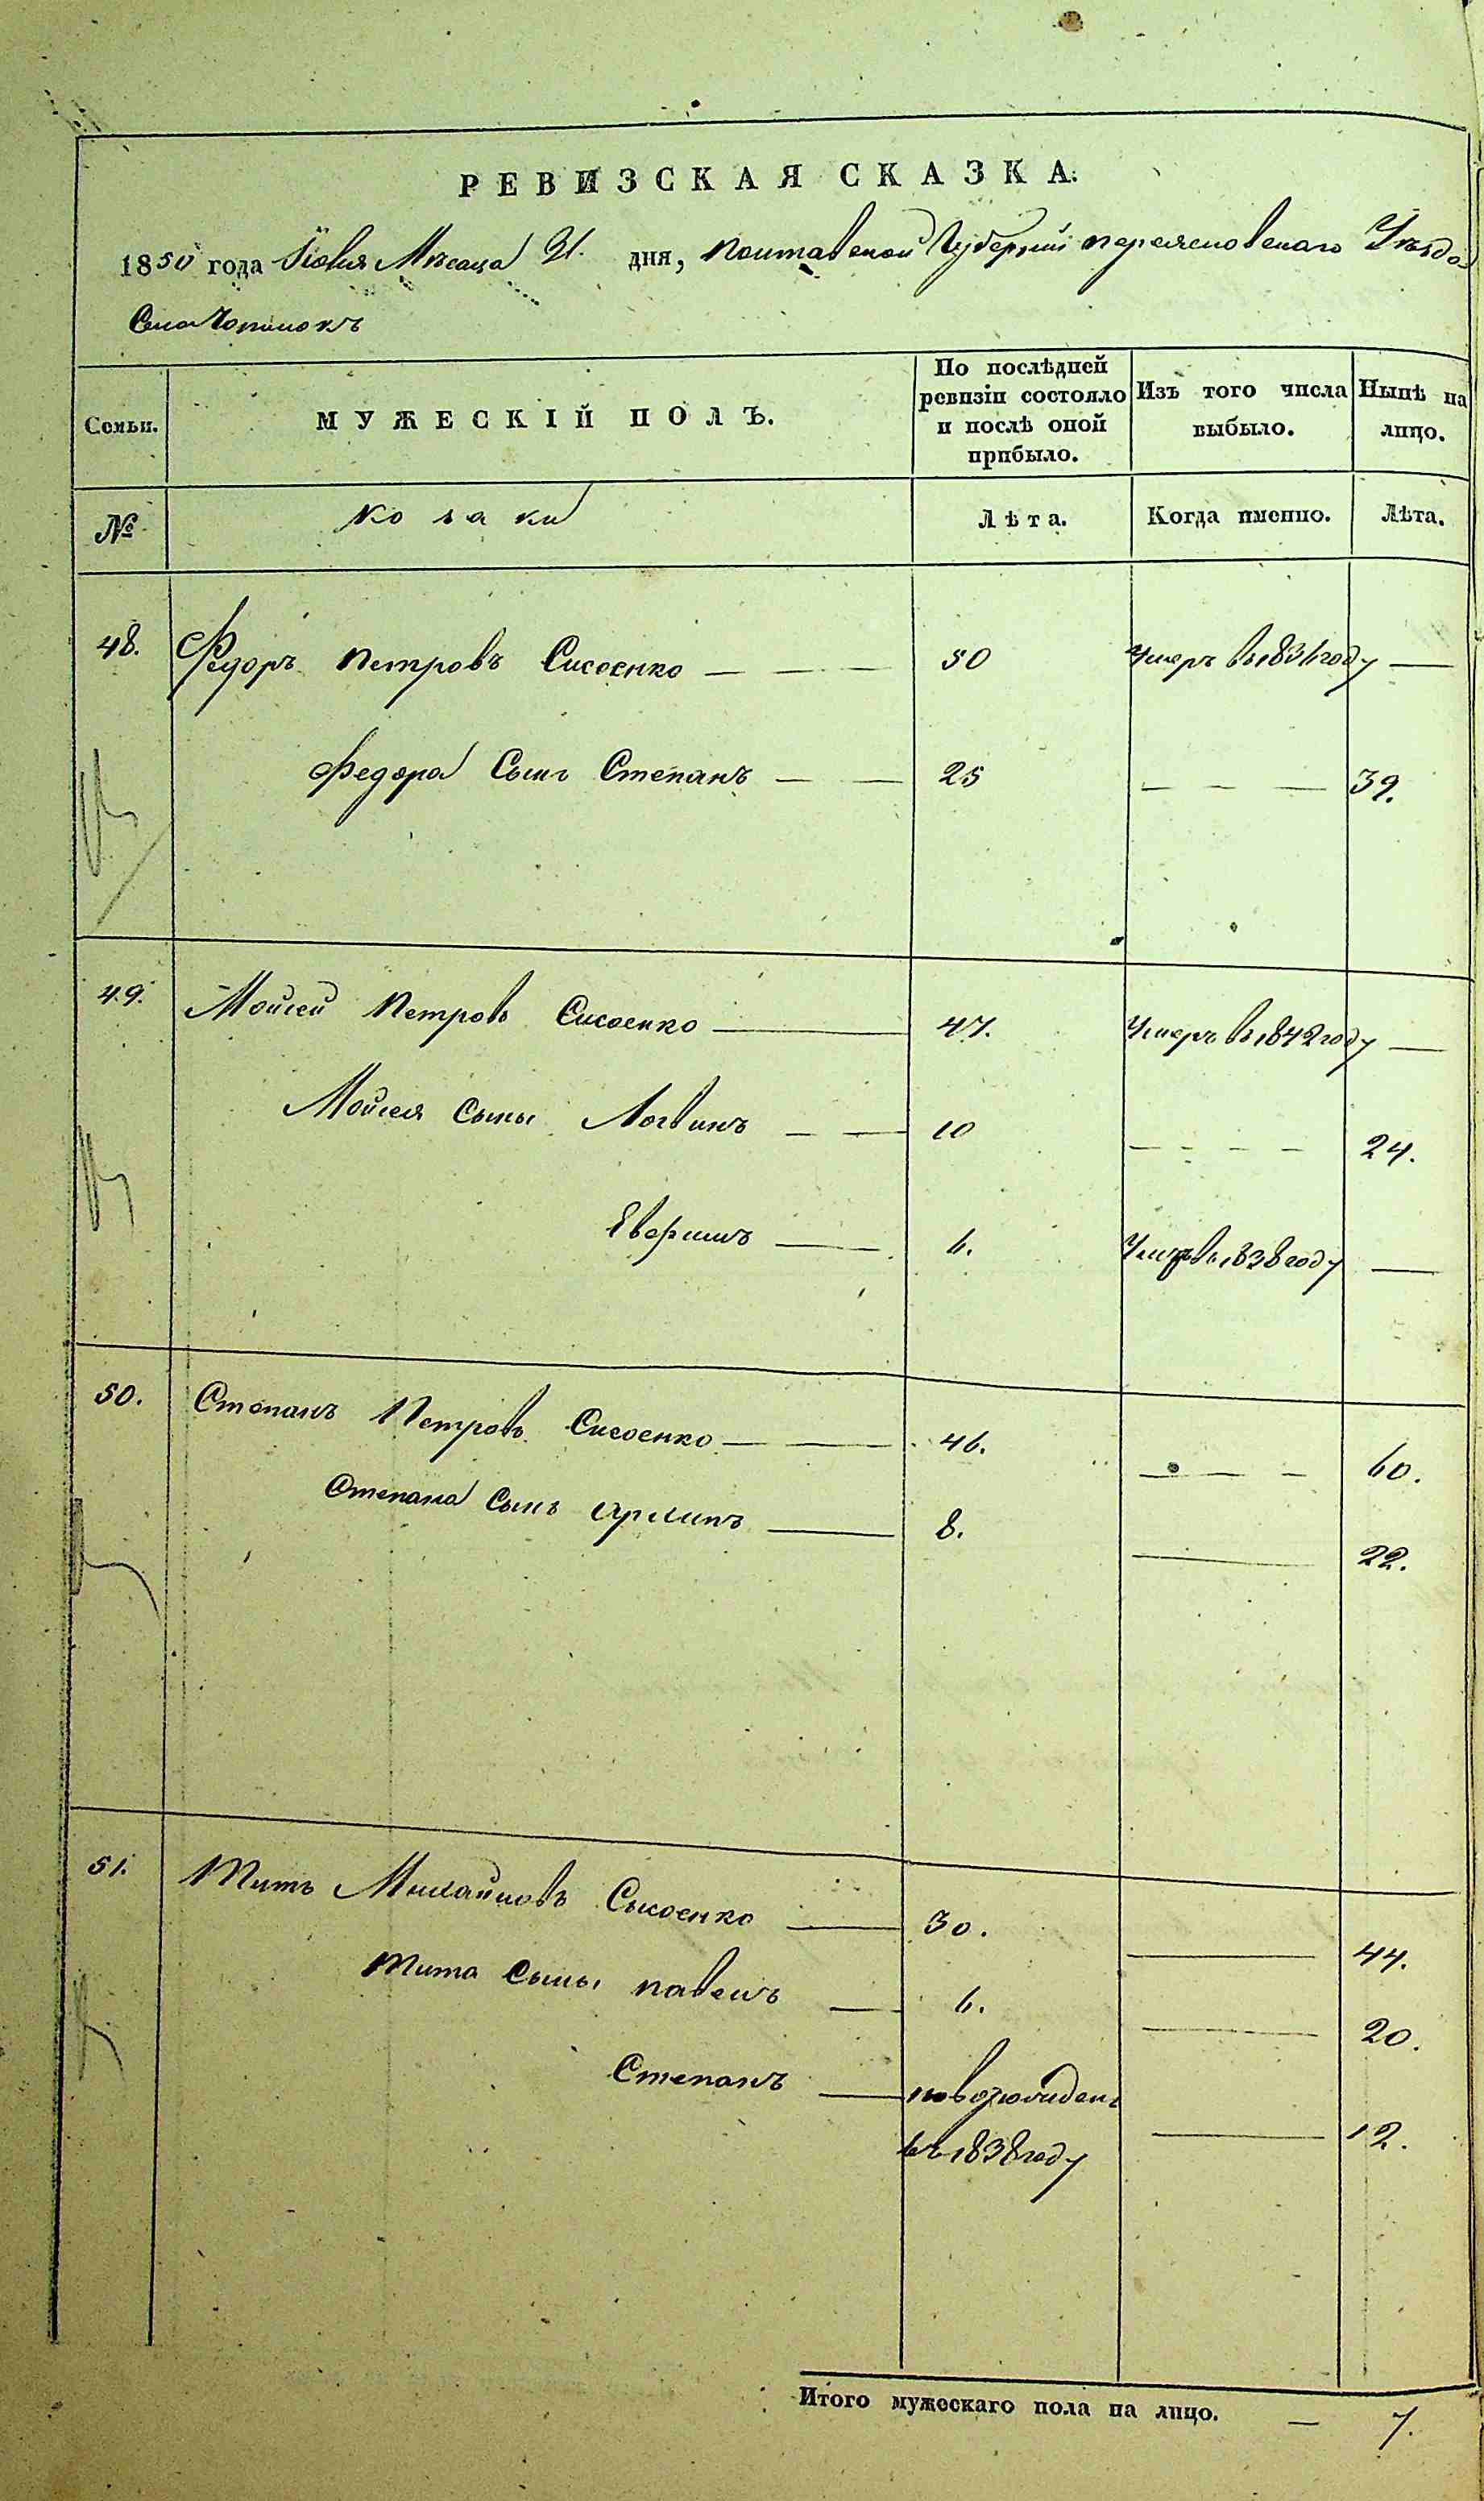 РЕВИЗСКАЯ СКАЗКА.
1850 года Іюня Мѣсяца 21. дня, Полтавской Губерніи переясловскаго Уѣзда
Села Чопилокъ
Семьи.
МУЖЕСКІЙ ПОЛЪ.
По послѣдней ревизіи состояло и послѣ оной прибыло.
Изъ того числа выбыло.
Нынѣ на лицо.
№
козаки
Лѣта.
Когда именно.
Лѣта.
48. Федоръ Петровъ Сисоенко — — 50 Умеръ въ 1836 году —
Федора Сынъ Степанъ — — 25 — — — 39.
49. Мойсей Петровъ Сисоенко — 47. Умеръ въ 1842 году —
Мойсея Сыны Логвинъ — — 10 — — — — 24.
— 6. Умеръ въ 1838 году —
50. Степанъ Петровъ Сисоенко — — 46. — — — 60.
Степана Сынъ — 8. — 22.
51. Титъ Михайловъ Сысоенко — 30. — 44.
Тита Сыны павелъ — 6. — 20.
Степанъ — новорожденъ
въ 1838 году — 12.
Итого мужескаго пола на лицо. — 7.